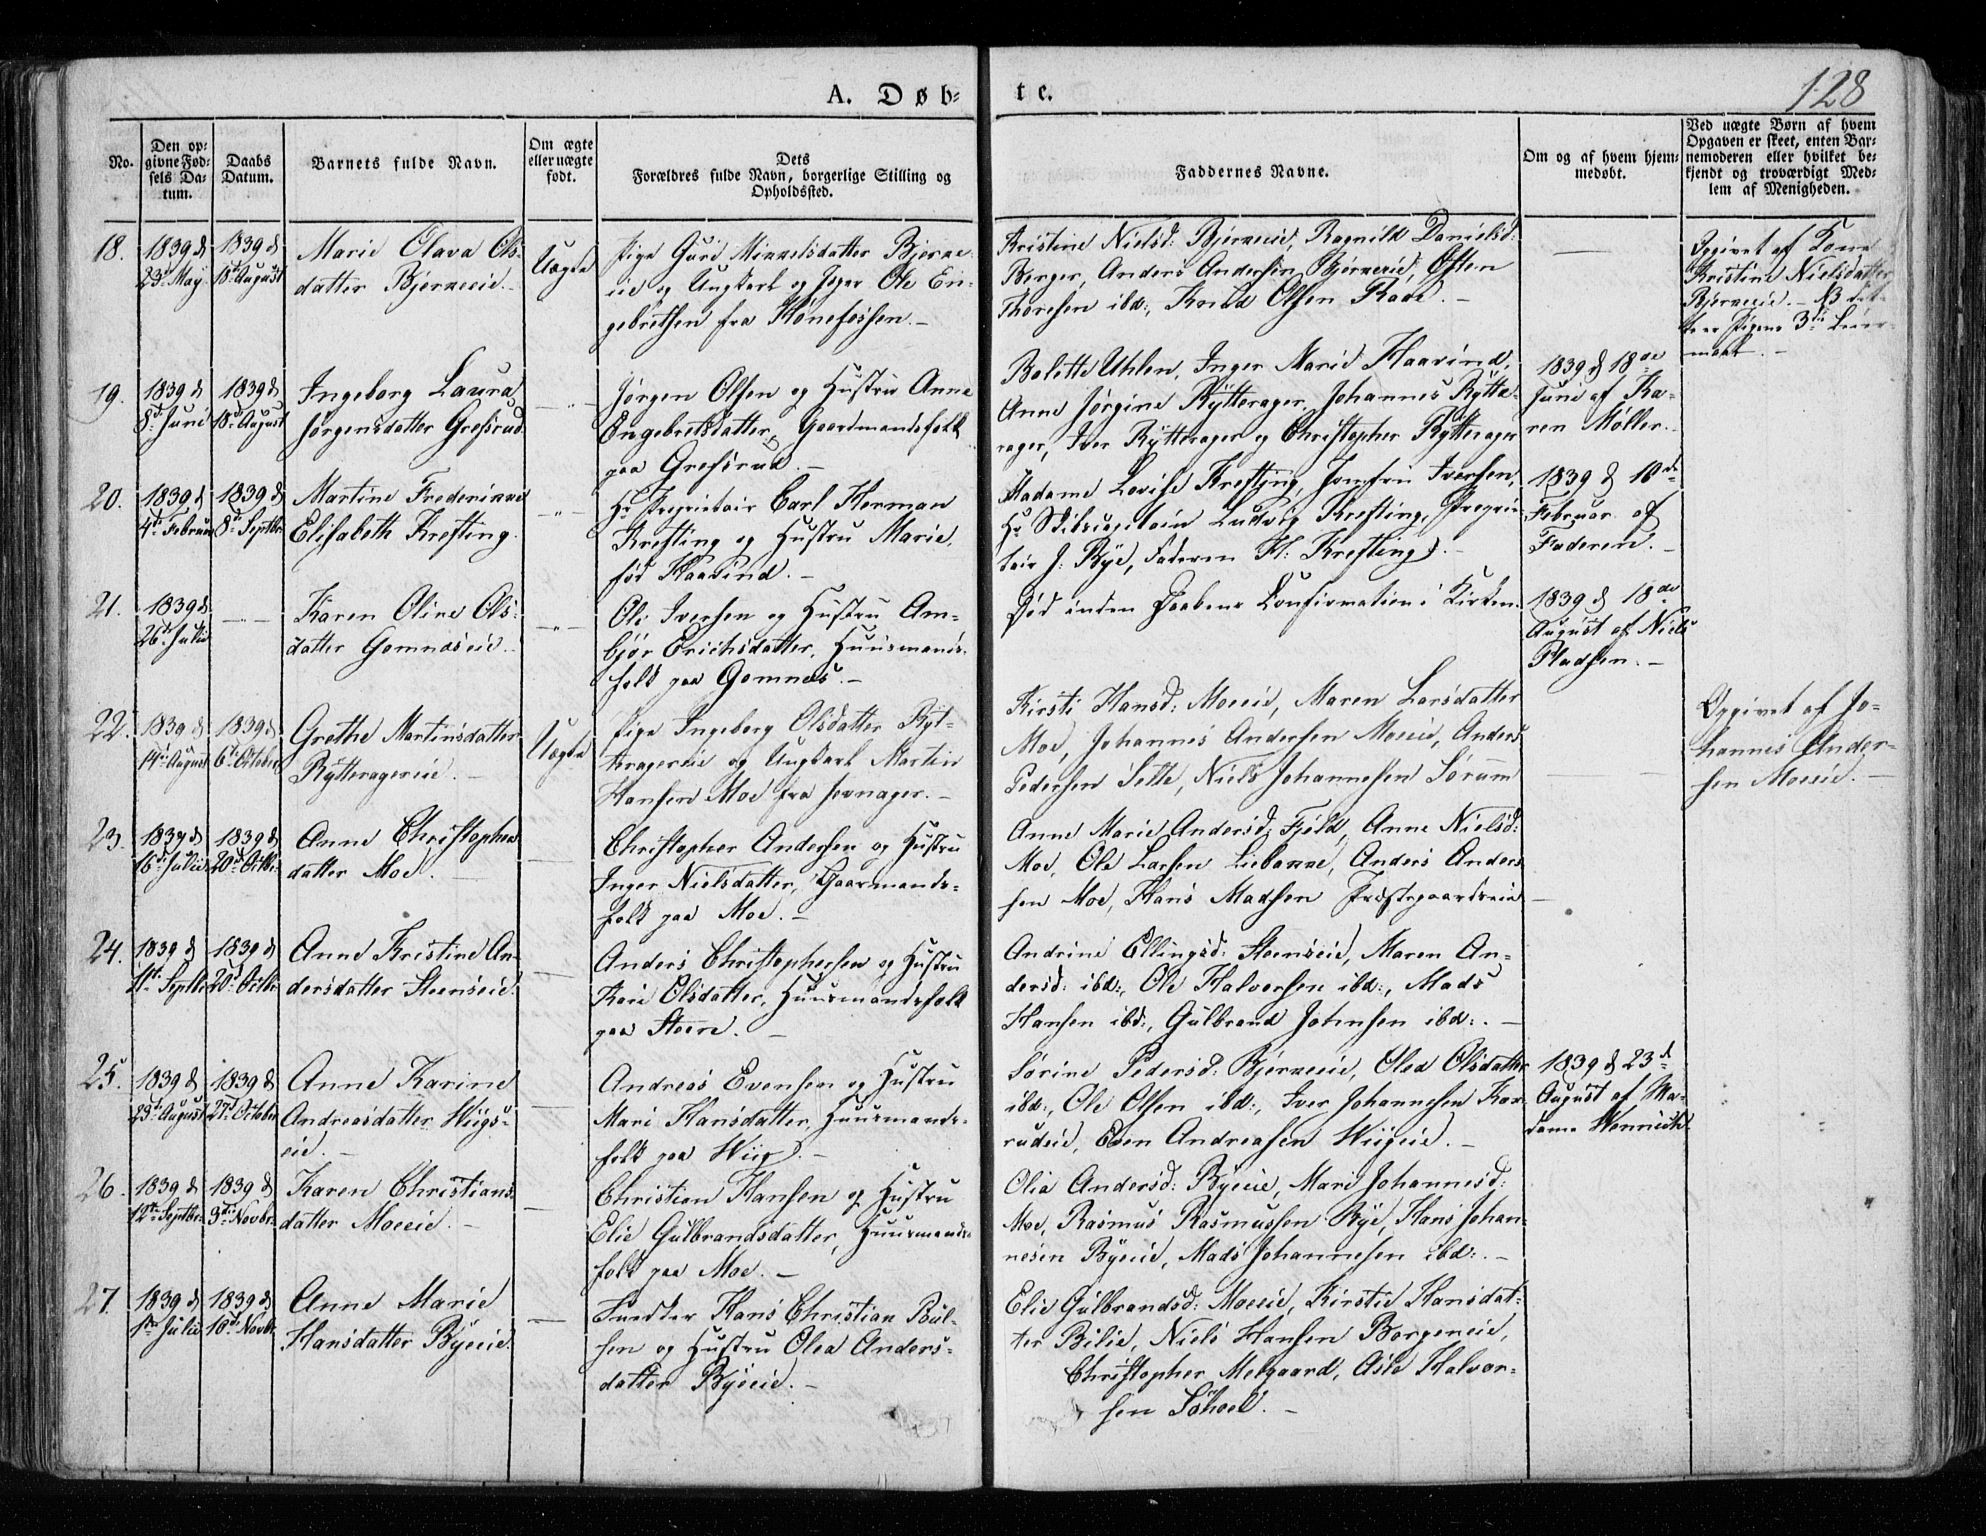 128
A. Døb-
te.
No.
Den op-
givne Fød-
sels Da-
tum.
Daabs
Datum.
Barnets fulde Navn.
Om ægte
eller uægte
født.
Dets
Forældres fulde Navn, borgerlige Stilling og
Opholdssted.
Faddernes Navne.
Om og af hvem hjem-
medøbt.
Ved uægte Børn af hvem
Opgaven er skeet, enten Bar-
nemoderen eller hvilket be-
kjendt og troværdigt Med-
lem af Menigheden.
18.
1839 d
23d May
1839 d
18d August
Marie Olava Ols-
datter Bjerkeeie.
Uægte
Pige Guri Mikkelsdatter Bjerke-
eie og Ungkarl og Jæger Ole En-
gebrethsen fra Hønefossen.
Kristine Nielsd: Bjerkeeie, Ragnild Danielsd:
Berger, Anders Andersen Bjerkeeie, Østen
Thoresen ibd:, Knud Olsen Rave.
Opgivet af Kone
Kristine Nielsdatter
Bjerkeeie. NB det-
te er Pigens 3die Leier-
maal.
19.
1839 d
8d Juni
1839 d
18d August
Ingeborg Laura
Jørgensdatter Gresrud
Jørgen Olsen og Hustru Anne
Engebretsdatter, Gaardmandsfolk
paa Gresrud.
Bolette Uhlen, Inger Marie Haavind,
Anne Jørgine Rytterager, Johannes Rytte-
rager, Iver Rytterager og Christopher Rytterager
1839 d 18de
Juni af Ka-
ren Møller.
20.
1839 d
4d Februar
1839 d
8d Septbr
Martine Frederikke
Elisabeth Krefting.
Hr Proprietair Carl Herman
Krefting og Hustru Marie,
fød Haavind.
Madame Lovise Krefting, Jomfru Iversen,
Hr Skibscapitain Ludvig Krefting, Proprie-
tair J. Bye, Faderen H: Krefting.
1839 d 10de
Februar af
Faderen.
21.
1839 d
26d Julii
Karen Oline Ols-
datter Gomnæseie.
Ole Iversen og Hustru Am-
bjør Erichsdatter, Huusmands-
folk paa Gomnæs.
Død inden Daabens Confirmation i Kirken.
1839 d 18de
August af Niels
Pladsen.
22.
1839 d
14d August
1839 d
6d October
Grethe Martinsdatter
Rytteragereie.
Uægte
Pige Ingeborg Olsdatter Ryt-
teragereie og Ungkarl Martin
Hansen Moe fra Jevnager.
Kirsti Hansd: Moeeie, Maren Larsdatter
Moe, Johannes Andersen Moeeie, Anders
Pedersen Sette, Niels Johannesen Sørum
Opgivet af Jo-
hannes Ander-
sen Moeeie.
23.
1839 d
16d Julii
1839 d
20d Octbr
Anne Christophers-
datter Moe.
Christopher Andersen og Hustru
Inger Nielsdatter, Gaarmands-
folk paa Moe.
Anne Marie Andersd: Fjeld, Anne Nielsd:
Moe, Ole Larsen Liebakke, Anders Anders-
sen Moe, Hans Madsen Præstegaardseie
24.
1839 d
11d Septbr
1839 d
20d Octbr
Anne Kristine An-
dersdatter Steenseie.
Anders Christophersen og Hustru
Kari Olsdatter, Huusmandsfolk
paa Steen.
Andrine Ellingsd: Steenseie, Maren An-
dersd: ibd:, Ole Halvorsen ibd:, Mads
Hansen ibd:, Gulbrand Johnsen ibd:.
25.
1839 d
23d August
1839 d
27d October
Anne Karine
Andreasdatter Wiigs-
eie.
Andreas Evensen og Hustru
Mari Hansdatter, Huusmands-
folk paa Wiig.
Sørine Pedersd: Bjerkeeie, Olea Olsdatter
ibd:, Ole Olsen ibd:, Iver Johannesen Kor-
rudeie, Even Andreasen Wiigeie.
1839 d 23d
August af Ma-
dame Wennech
26.
1839 d
12d Septbr.
1839 d
3d Novbr.
Karen Christians-
datter Moeeie.
Christian Hansen og Hustru
Elie Gulbrandsdatter, Huusmands-
folk paa Moe.
Olia Andersd: Byeeie, Mari Johannesd:
Moe, Rasmus Rasmussen Bye, Hans Johan-
nesen Byeeie, Mads Johannesen ibd:.
27.
1839 d
1ste Julii
1839 d
10d Novbr.
Anne Marie
Hansdatter Byeeie.
Hans Christian Poul-
sen og Hustru Olea Anders-
datter Byeeie.
Elie Gulbrandsd: Moeeie, Kirstie Hansdat-
ter Bilie, Niels Hansen Borgeneie,
Christopher Melgaard, Asle Halvor-
sen Søhoel.